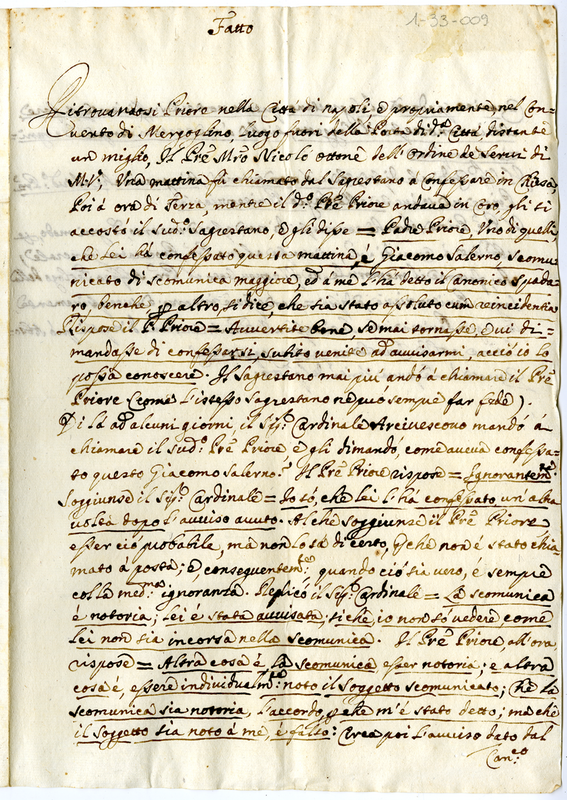 1-33-009
Fatto
Ritrovandosi Priore nella Città di napoli e propriamente nel Con-
vento di Mergoglino, luogo fuori della Porta di d.ª Città distante
un miglio, Il Prẽ Mrõ Nicolo ottone dell'ordine de Servi di
M.V., Una mattina fù chiamato dal Sagrestano à Confessare in Chiesa
Poi à ora di Terza, mentre il d.º Prẽ Priore andava in Coro, gli si
accostò il Sud.º Sagrestano, e gli disse = Padre Priore, Uno di quelli,
che lei hà confessato questa mattina, è Giacomo Salerno, scomu
nicato di scomunica maggiore, ed à mè l'hà detto il Canonico Spada
ro, benche per altro, si dice, che sia stato assoluto cum reincidentia
Rispose il P. Priore = Avvertite bene, se mai tornasse, e vi di-
mandasse di confessarsi, subito venite ad avvisarmi, acciò io lo
possa conoscere. Il Sagrestano mai più andò à chiamare il Prẽ
Priore (come l'istesso Sagrestano ne può sempre far fede).
Di là ad alcuni giorni, il Sig.r Cardinale Arcivescovo mandò à
chiamare il Sud.º Prẽ Priore, e gli dimandò, come aveva confessa-
to questo Giacomo Salerno? Il Prẽ Priore rispose = Ignorantem.te
Soggiunse il Sig.r Cardinale = Io sò, che lei l'hà confessato un'altra
volta dopo l'avviso avuto. Al che soggiunse il Prẽ Priore
esser ciò probabile, mà non lo sà di certo, perche non è stato chia
mato à posta; e conseguentem.te quando ciò sia vero, è sempre
colla med.ma ignoranza. Replicò il Sig.r Cardinale = La scomunica
è notoria; lei è stato avvisato; sicchè, io non sò vedere come
lei non sia incorso nella scomunica. Il Prẽ Priore, all'ora
rispose = Altra cosa è, la scomunica esser notoria; e altra
cosa è, essere individualm.te noto il soggetto scomunicato; Che la
scomunica sia notoria, l'accordo, perche m'è stato detto; mà che
il soggetto sia noto à mè, è falso: Circa poi l'avviso dato dal
Can.co